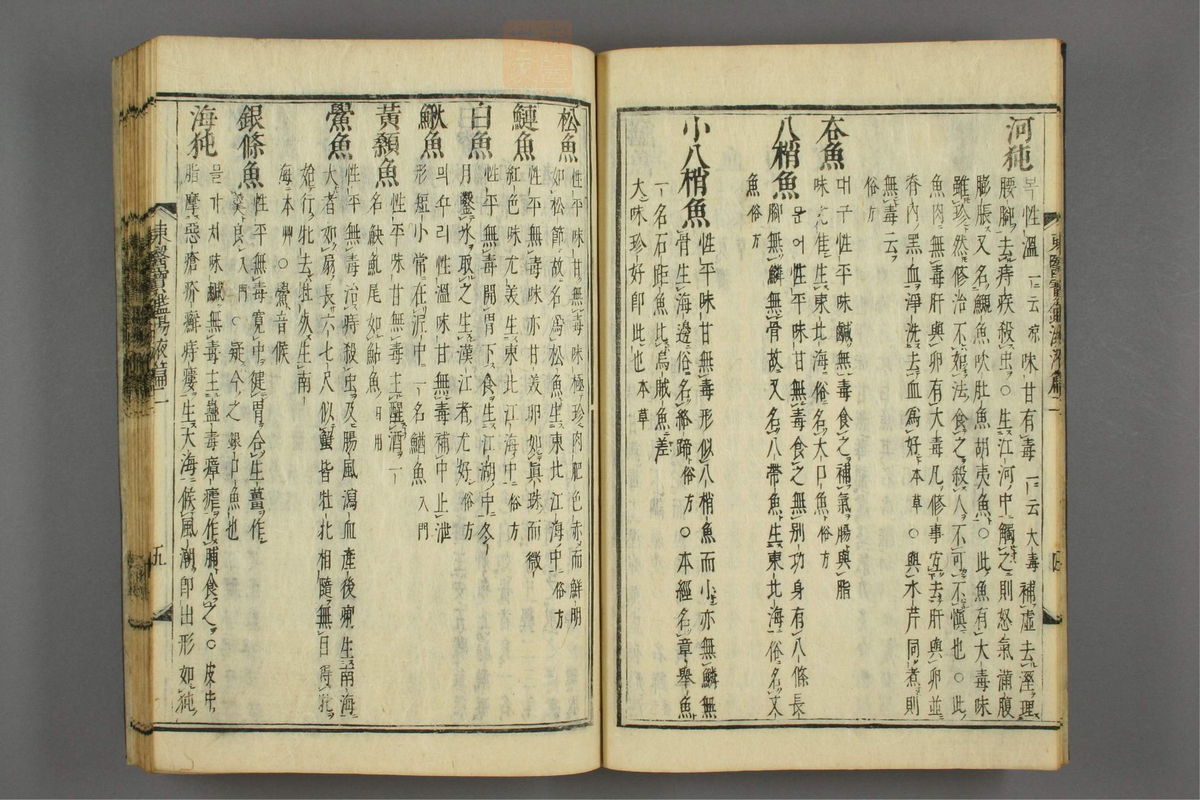 河㹠
복性溫一云凉味生甘有毒一云大毒補虛去溼理
腰脚去痔疾殺虫○生江河中觸之則怒氣滿腹
膨脹又名鯢魚吹肚魚胡夷魚○此魚有大毒味
雖珍然修治不如法食之殺人不可不愼也○此
魚肉無毒肝與卵有大毒凡修事宜去肝與卵並
脊內黑血淨洗去血爲好本草○與水芹同煮則
無毒云
俗方
夻魚
대구性平味鹹無毒食之補氣腸與脂
味尤佳生東北海俗名大口魚俗方
八梢魚
문어性平味甘無毒食之無別功身有八條長
脚無鱗無骨故又名八帶魚生東北海俗名文
魚俗方
小八梢魚
性平味甘無毒形似八梢魚而小亦無鱗無
骨生海邊俗名絡蹄俗方○本經名章舉魚
一名石距魚比烏賊魚差
大味珍好卽此也本草
松魚
性平味甘無毒味極珍肉肥色赤而鮮明
如松節故名爲松魚生東北江海中俗方
鰱魚
性平無毒味亦甘美卵如眞珠而微
紅色味尤美生東北江海中俗方
白魚
性平無毒開胃下食生江湖中冬
月鑿氷取之生漢江者尤好俗方
鰍魚
믜ᄭᅮ리性溫味甘無毒補中止泄
形短小常在泥中一名鰌魚入門
黃顙魚
性平味甘無毒主醒酒一
名䱀魠尾如鮎魚日用
鱟魚
性平無毒治痔殺虫及腸風瀉血產後痢生南海
大者如扇長六七尺似蟹皆牡牝相隨無目得牝
始行牝去牡死生南
海本艸○鱟音候
銀條魚
性平無毒寬中健胃合生薑作
羹良入門○疑今之銀口魚也
海㹠
믈가치味鹹無毒主蠱毒瘴瘧作脯食之○皮中
脂摩惡瘡疥癬痔瘻生大海候風潮卽出形如㹠
東醫寶鑑湯液篇二
五